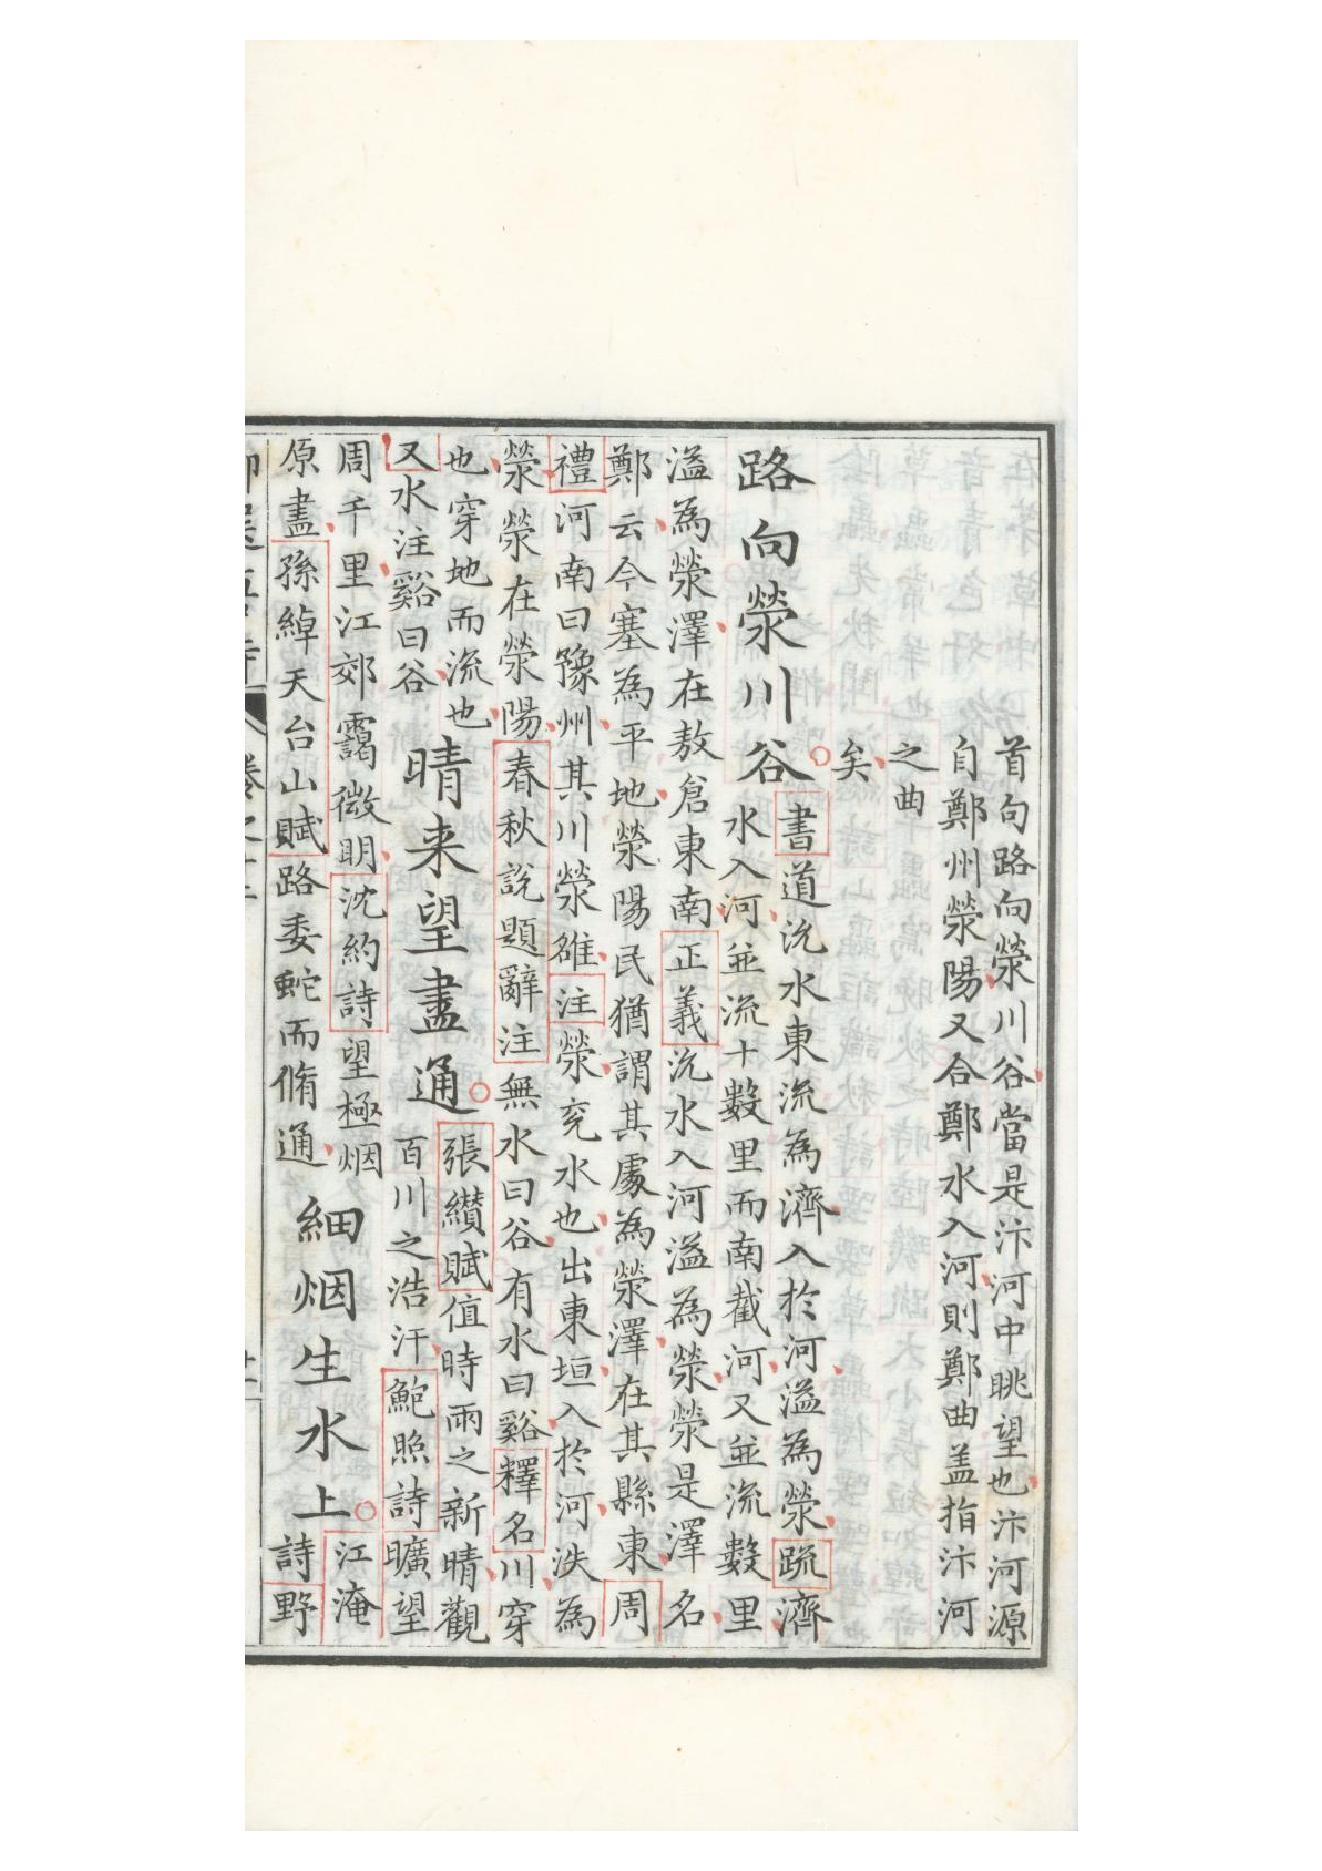 首句路向滎川谷當是汴河中眺望也汴河源
自鄭州滎陽又合鄭水入河則鄭曲盖指汴河
之曲
矣
路向滎川谷
書道沇水東流為濟入於河溢為滎疏濟
水入河並流十數里而南截河又並流數里
溢為滎澤在敖倉東南正義沇水入河溢為滎滎是澤名
鄭云今塞為平地滎陽民猶謂其處為滎澤在其縣東周
禮河南曰豫州其川滎雒注滎兖水也出東垣入於河泆為
滎滎在滎陽春秋說題辭注無水曰谷有水曰谿釋名川穿
也穿地而流也
又水注谿曰谷
晴来望盡通
張纘賦值時雨之新晴觀
百川之浩汗鮑照詩曠望
周千里江郊靄微明沈約詩望極烟
原盡孫綽天台山賦路委蛇而脩通
細烟生水上
江淹
詩野